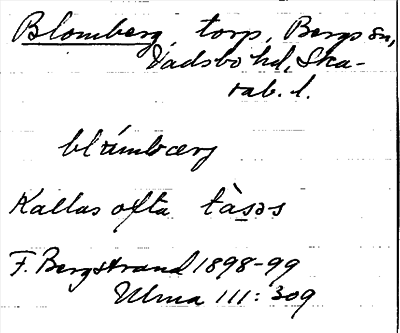 Blomberg, torp, Bergs sn,
Vadsbo hd, Ska-
rab. l.
blɤ́mbærj
Kallas ofta tàsəs
F. Bergstrand 1898-99
Ulma 111: 309